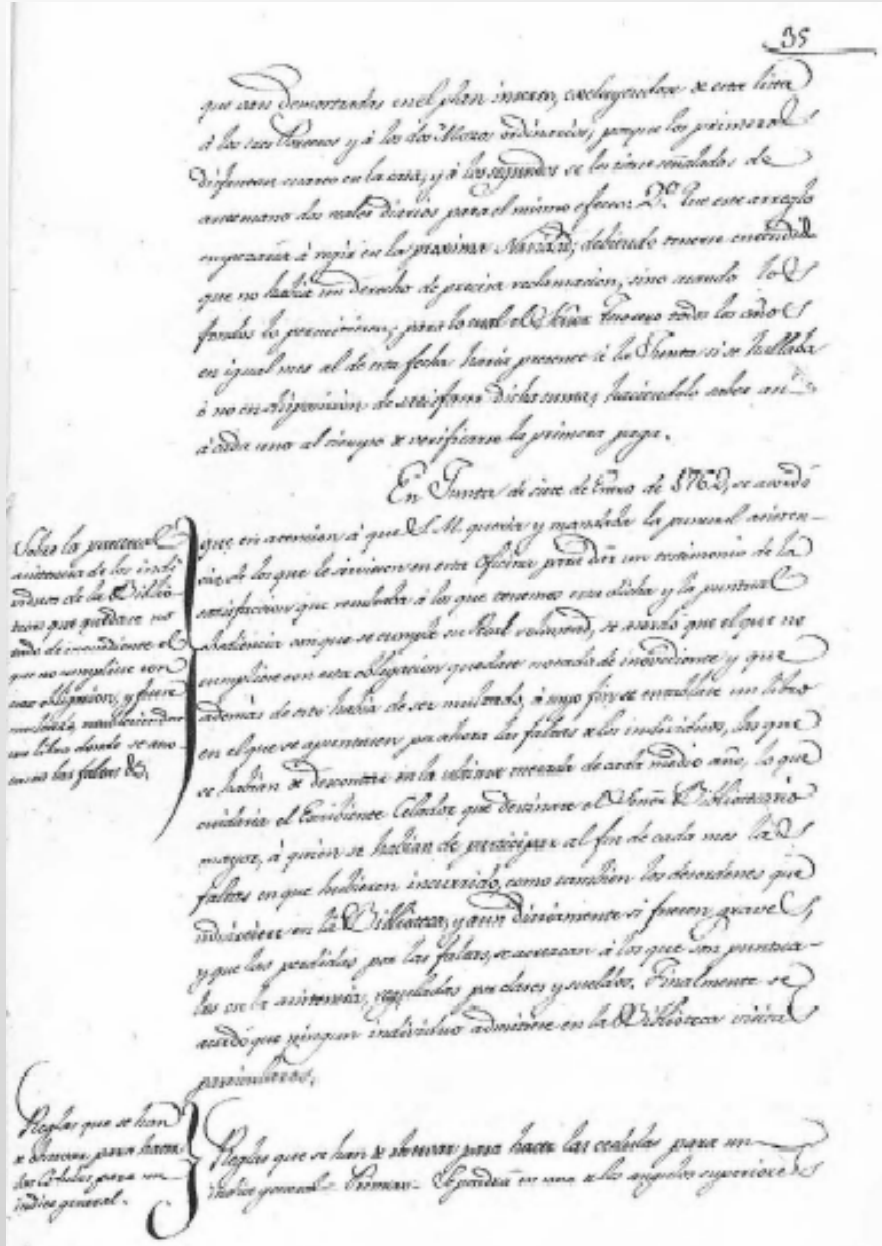 35
que van demostradas en el plan inserto, excluyendose de esta lista
á los tres Porteros y á los dos Mozos ordinarios, porque los primeros
disfrutan cuarto en la casa, y á los segundos se les tiene señalados de
antemano dos reales diarios para el mismo efecto: 2.º Que este arreglo
empezaria á regir en la proxima Navidad, debiendo tenerse entendido
que no habia un derecho de precisa reclamacion, sino cuando los
fondos lo permitiesen; para lo cual el Señor Tesorero todos los años
en igual mes al de esta fecha haria presente á la Junta si se hallaba
ó no en disposicion de satisfacer dicha suma, haciendolo saber asi
á cada uno al tiempo de verificarse la primera paga.
En Junta de siete de Enero de 1762, se acordó
Sobre la puntual
asistencia de los indi-
viduos de la Biblio-
teca que quedase no-
tado de inobediente el
que no cumpliese con
esta obligacion, y fuese
multado,
un libro donde se ano-
ten las faltas &c.
que en atencion á que S. M. queria y mandaba la puntual asisten-
cia de los que le servimos en esta Oficina para dar un testimonio de la
satisfaccion que resultaba á los que tenemos esta dicha y la puntual
obediencia con que se cumple su Real voluntad, se acordó que el que no
cumpliese con esta obligacion quedase notado de inobediente y que
además de esto habia de ser multado, á cuyo fin se entablase un libro
en el que se apuntasen por ahora las faltas de los individuos, las que
se habian de descontar en la ultima mesada de cada medio año, lo que
cuidaria el Escribiente Celador que destinare el Señor Bibliotecario
mayor, á quien se habian de participar al fin de cada mes las
faltas en que hubiesen incurrido, como tambien los desordenes que
advirtiese en la Biblioteca, y aun diariamente si fuesen graves,
y que las perdidas por las faltas, se acrezcan á los que son puntua-
les en la asistencia, reguladas por clases y sueldos. Finalmente se
acordó que ningun individuo admitiese en la Biblioteca visitas
particulares.
Reglas que se han
de observar para hacer
las Cédulas para un
indice general.
Reglas que se han de observar para hacer las cedulas para un
indice general. Primera. Se pondrá en uno de los angulos superiores